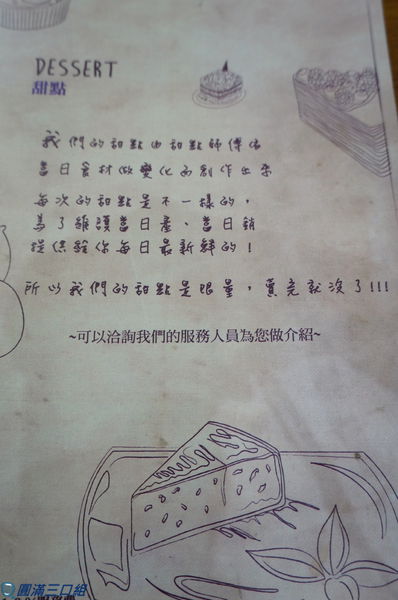 DESSERT
甜點
我們的甜點由甜點師傅依
當日食材做變化而創作出來
每次的甜點是不一樣的,
為了維護當日產、當日銷
提供給你每日最新鮮的!
所以我們的甜點是限量,賣完就沒了!!!
~可以洽詢我們的服務人員為您做介紹~
圓滿三口組